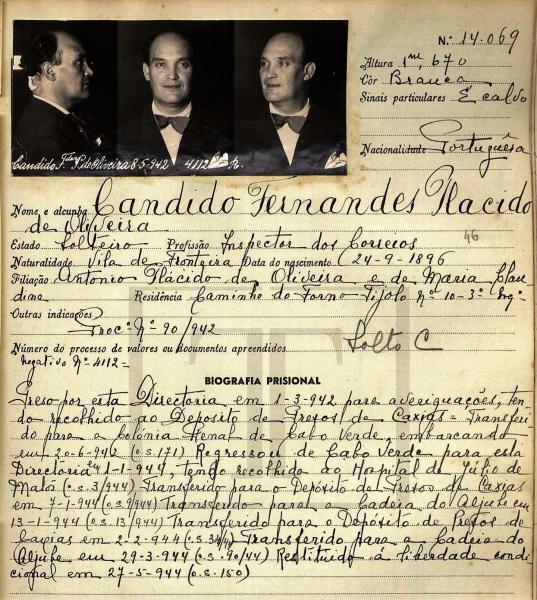 Nº 14.069
Altura 1m,670
Côr Branca
Sinais particulares É calvo
Nacionalidade Portuguêsa
Candido F. de Oliveira 8-5-942 4112
Nome e alcunha Candido Fernandes Placido
de Oliveira
Estado Solteiro Profissão Inspector dos Correios
46
Naturalidade Vila de Fronteira Data do nascimento (24-9-1896
Filiação Antonio Plácido de Oliveira e de Maria Clau
dina Residência Caminho do Forno Tijolo nº 10-3º Esqº
Outras indicações
Procº Nº 90/942
Solto C
Número do processo de valores ou documentos apreendidos
Negativo Nº 4112=
BIOGRAFIA PRISIONAL
Preso por esta Directoria em 1-3-942 para averiguações, ten
do recolhido ao Deposito de Presos de Caxias = Transferi
do para a Colónia Penal de Cabo Verde, embarcando
em 20-6-942 (o.s.171) Regressou de Cabo Verde para esta
Directoria em 1-1-944, tendo recolhido ao Hospital de Júlio de
Matos (o.s.3/944) Transferido para o Depósito de Presos de Caxias
em 7-1-944 (o.s.9/944) Transferido para a Cadeia do Aljube em
13-1-944 (o.s.13/944) Transferido para o Depósito de Presos de
Caxias em 2-2-944 (o.s.34/4) Transferido para a Cadeia do
Aljube em 29-3-944 (o.s.90/44) Restituido á liberdade condi
cional em 27-5-944 (o.s.150)